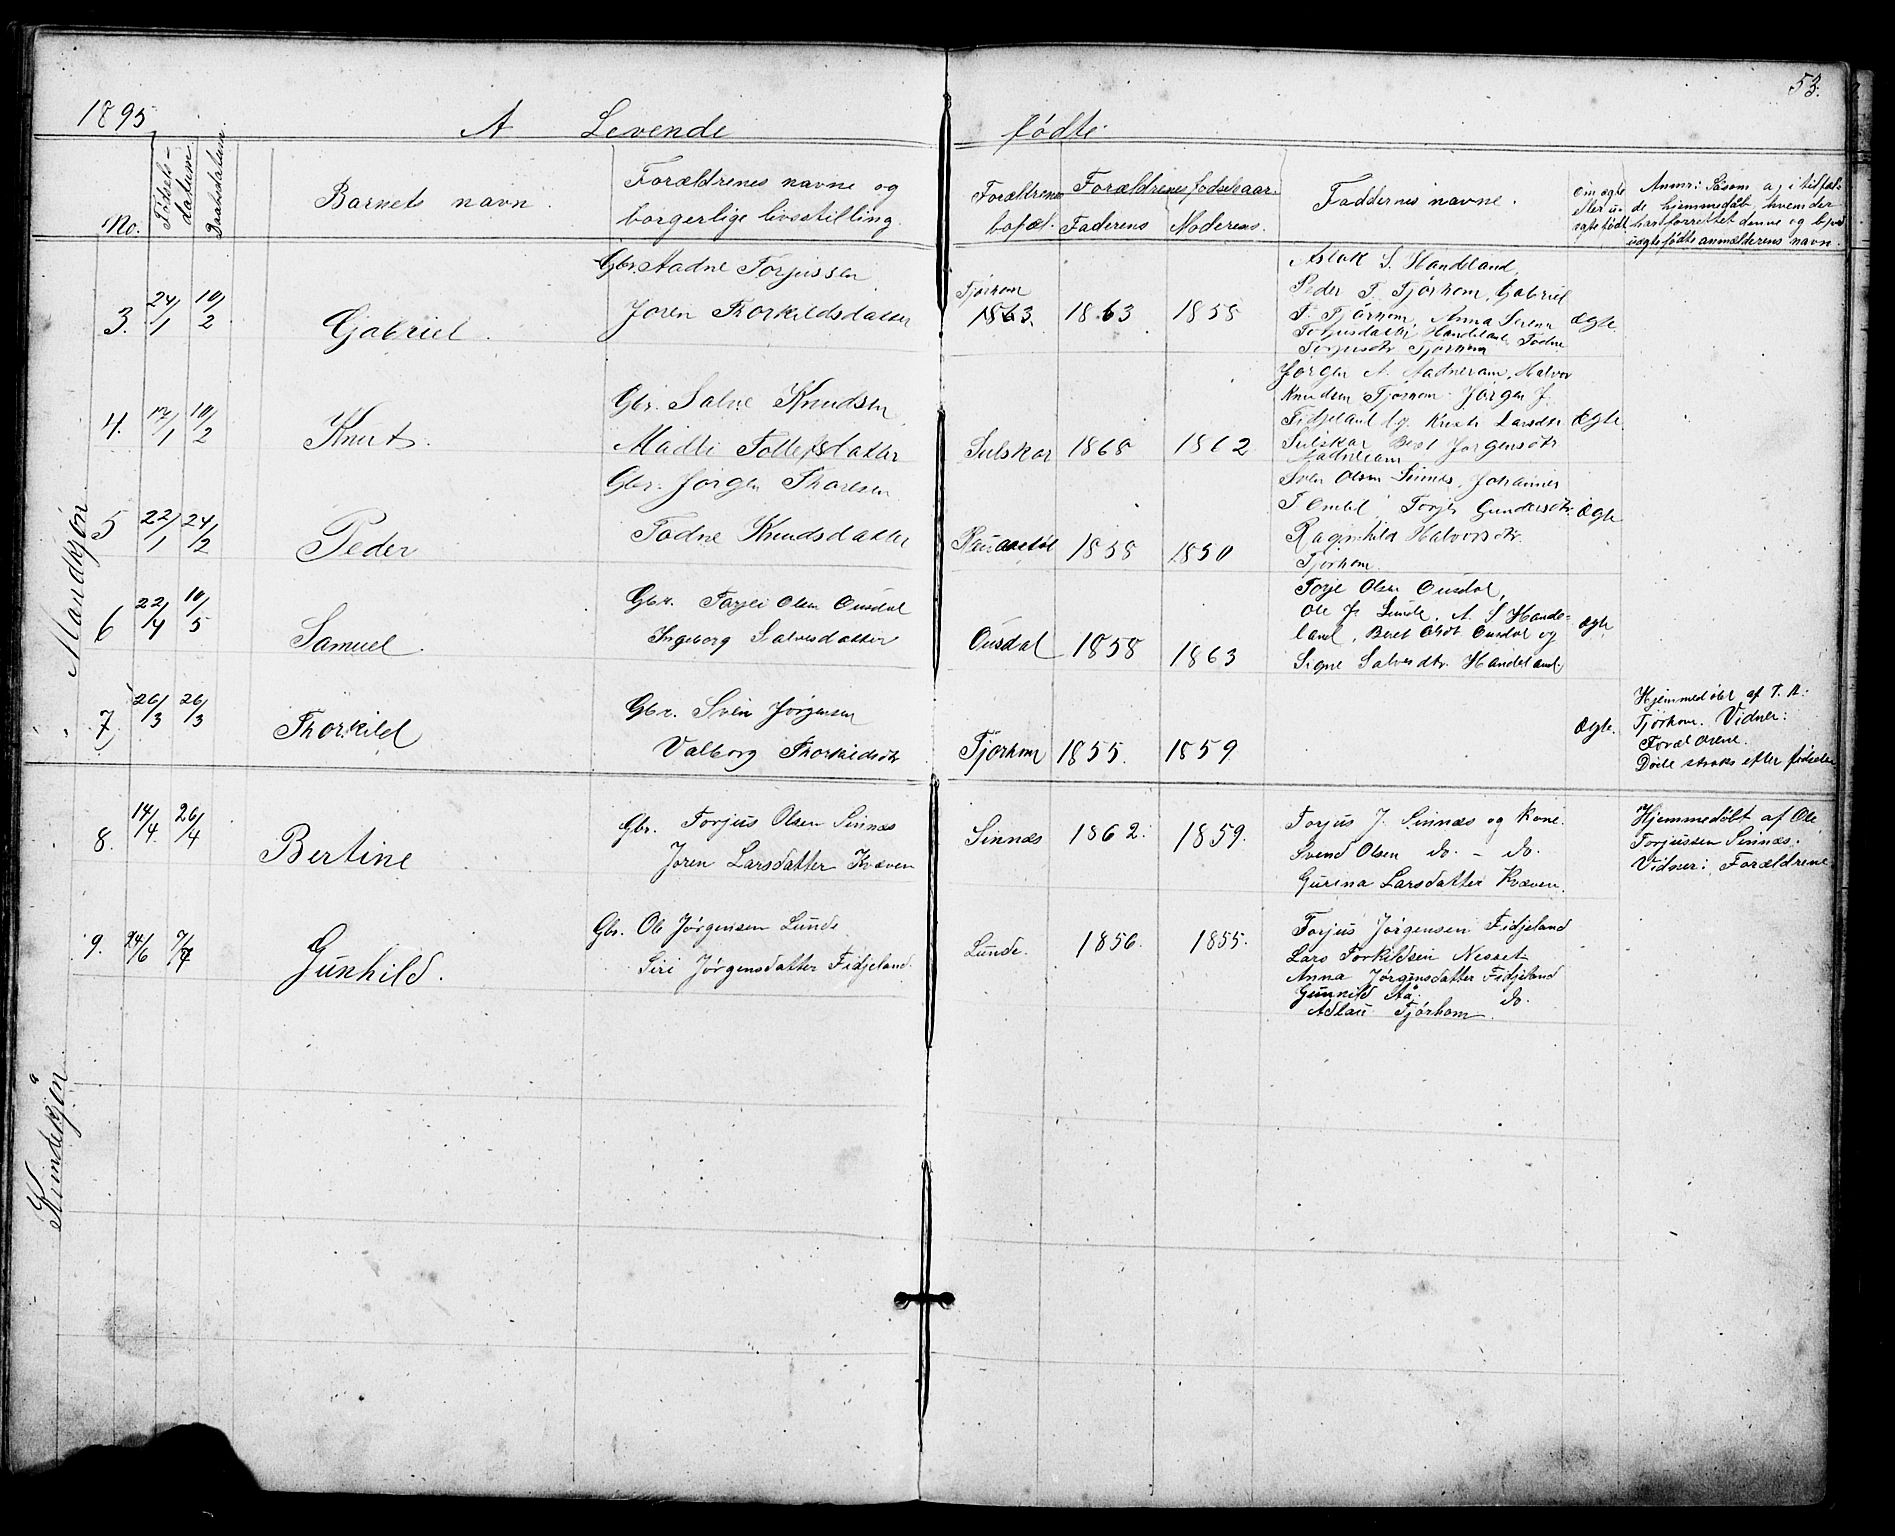 53.
1895
A Levende fødte.
No.
Fødsels-
datum.
Daabsdatum.
Barnets navn.
Forældrenes navne og
borgerlige livsstilling.
Forældrenes
bopæl.
Forældrenes fødselsaar.
Faderens
Moderens.
Faddernes navne.
Om ægte
eller u-
ægte født
Anmr: Såsom a, i tilfæl-
de hjemmedåb, hvem der
har forrettet denne og b, ved
uægtefødte anmælderens navn.
Mandkjøn
3. 24/1 10/2 Gabriel.
Gbr. Aadne Torjussen
Joren Thorkildsdatter
Tjorhom
1863. 1863 1858
Aslak S. Handeland,
Peder T. Tjorhom, Gabriel
T. Tjörhom, Anna Serine
Torjusdatter Handeland Todne
Torjusdtr Tjorhom
Ægte.
4. 17/1 10/2 Knut.
Gbr. Salve Knudsen
Madli Tollefsdatter
Sulskar 1868 1862
Jørgen A. Aadneram, Halvor
Knudsen Tjorhom Jörgen J.
Fidjeland og Kirsti Larsdtr
Sulskar Beret Jorgensdtr
Aadneram
Ægte.
5 22/1 24/2 Peder
Gbr. Jorgen Thorsen
Todne Knudsdatter
1858 1850
Sven Olsen Sinnes, Johannes
T. Omlid, Torjer Gundersdtr
Ragnhild Halvorsdtr.
Tjorhom.
Ægte
6 22/4 10/5 Samuel.
Gbr. Torjei Olsen Ousdal
Ingeborg Salvesdatter
Ousdal 1858 1863
Torje Olsen Ousdal,
Ole J. Lunde, A. S Hande-
land, Beret Olsdt Ousdal og
Signe Salvesdtr. Handeland
Ægte.
7. 26/3 26/3 Thorkild
Gbr. Sven Jørgensen
Valborg Thorkildsdtr
Tjorhom 1855. 1859
Ægte.
Hjemmedöbt af T. A.
Tjorhom. Vidner:
Forældrene.
Döde straks efter fødselen
Kvindekjøn
8. 14/4. 26/4 Bertine
Gbr. Torjus Olsen Sinnæs
Joren Larsdatter Kvæven
Sinnæs 1862. 1859.
Torjus J. Sinnæs og Kone.
Svend Olsen do. - do.
Gurina Larsdatter Kvæven.
Hjemmedøbt af Ole
Torjussen Sinnæs.
Vidner: Forældrene
9. 24/6 7/7 Gunhild.
Gbr. Ole Jørgensen Lunde
Siri Jørgensdatter Fidjeland.
Lunde. 1856. 1855.
Torjus Jørgensen Fidjeland
Lars Torkildsen Nesset
Anna Jørgensdatter Fidjeland
Gunhild Aa. do.
Adlau Tjørhom.